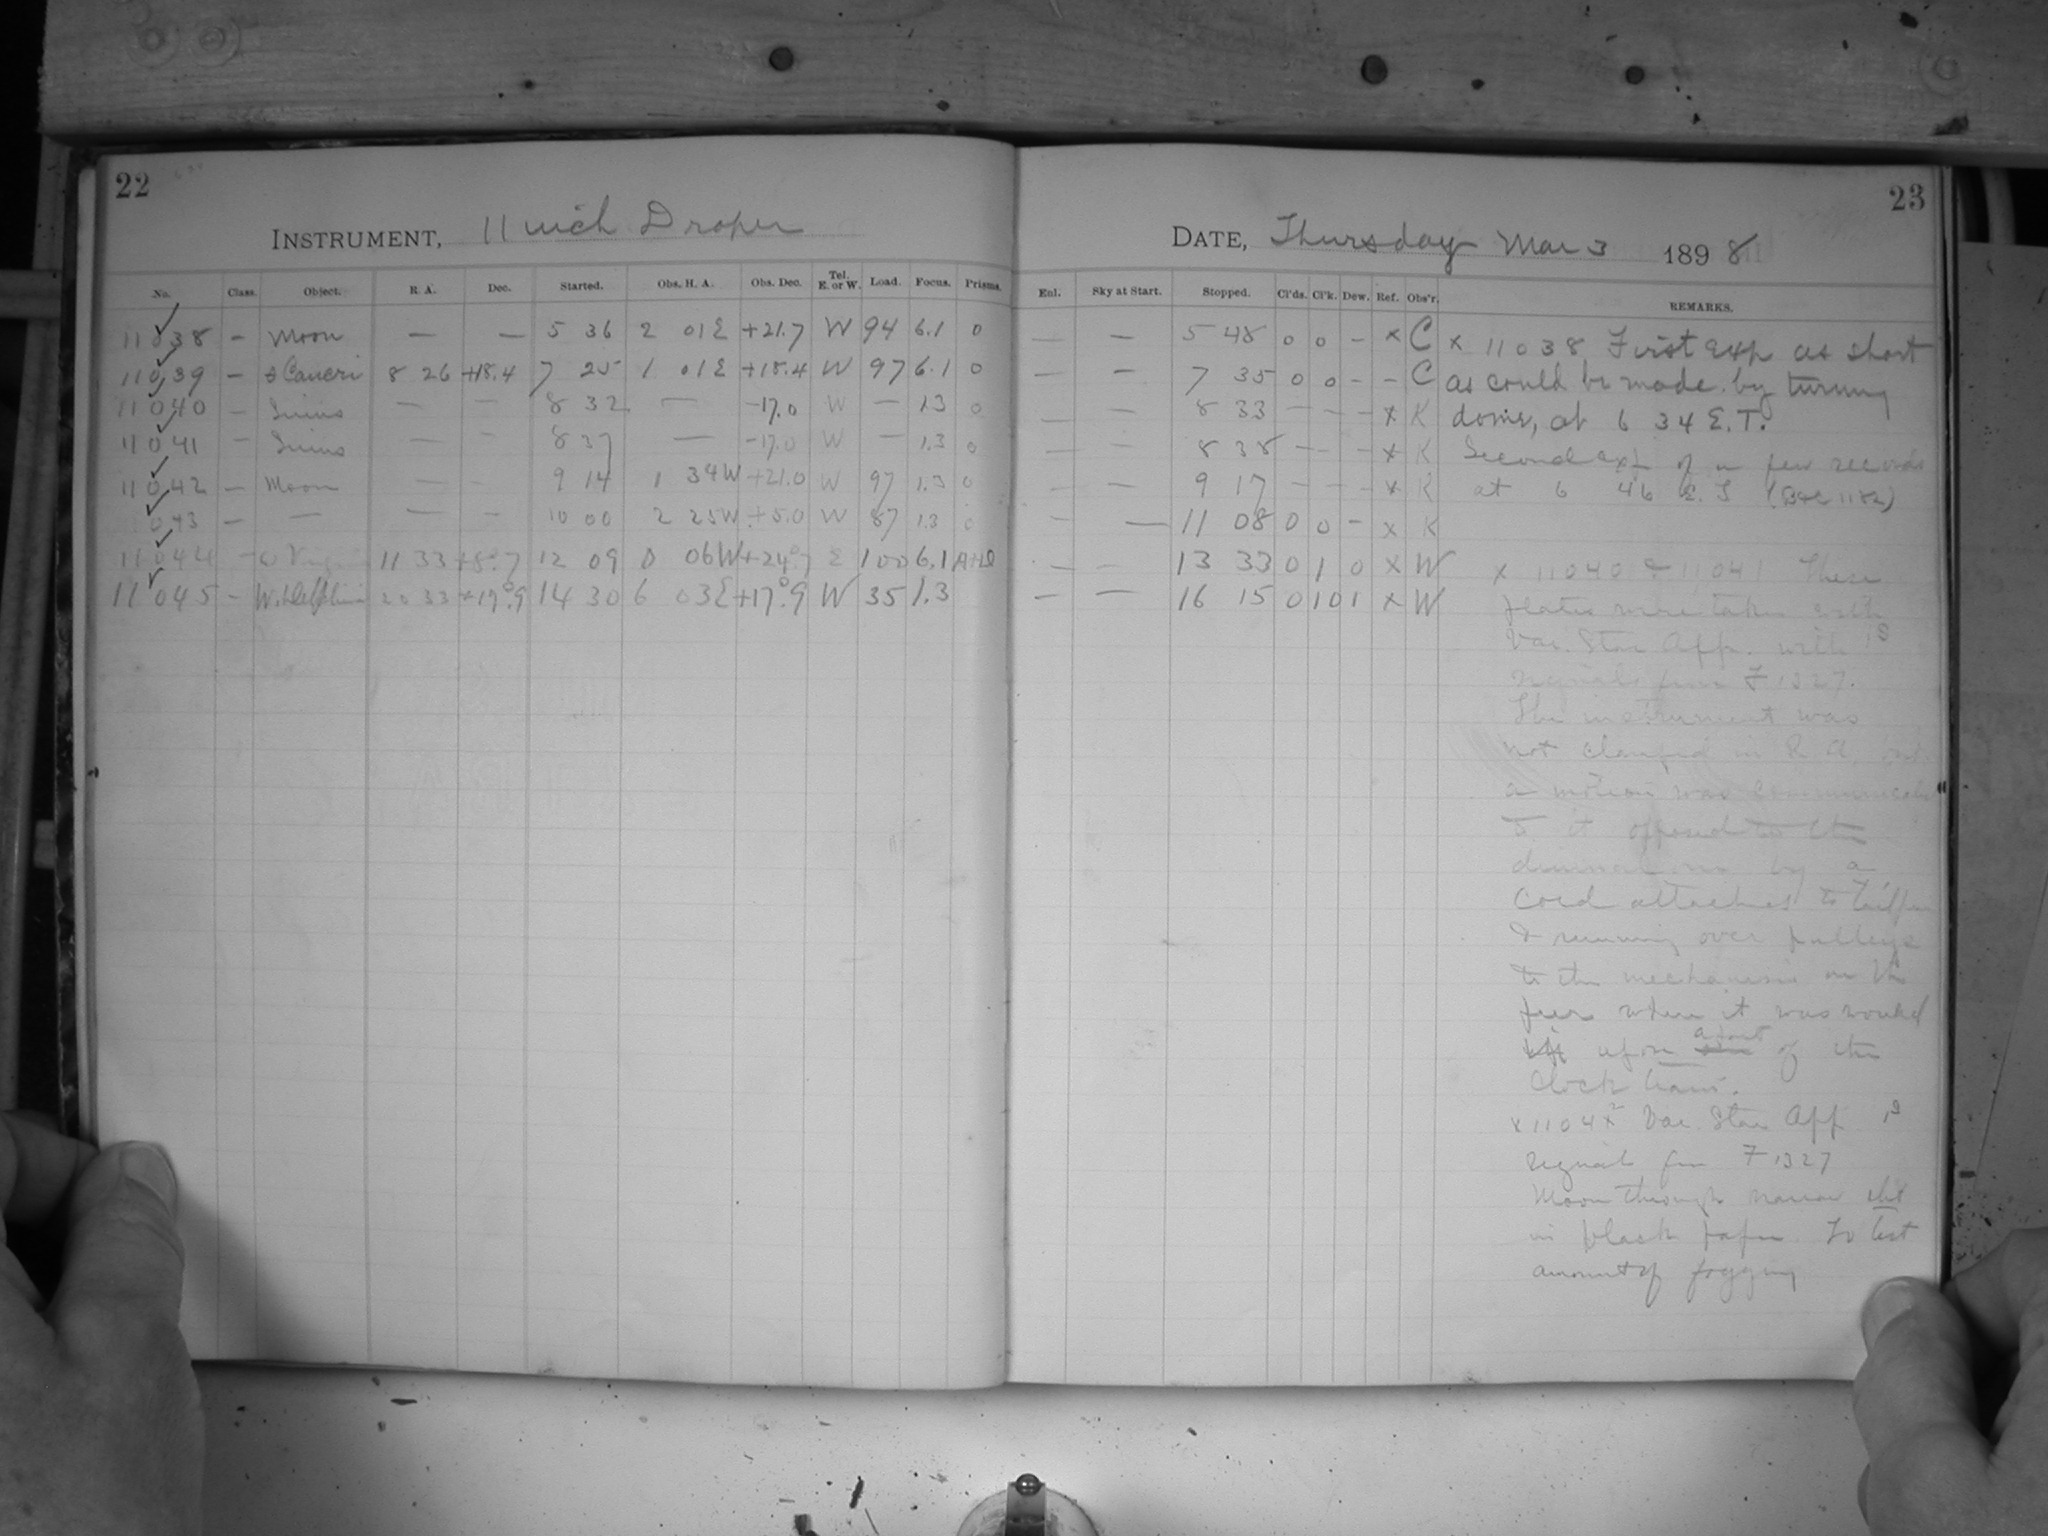 22
INSTRUMENT, 11 inch Draper
No. Class. Object. R. A. Dec. Started. Obs. H. A. Obs. Dec. Tel. E. or W. Load. Focus. Prisms.
11038 – Moon — — 5 36 2 01E +21.7 W 94 6.1 0
11039 – Cancri 8 26 +18.4 7 25 1 01E +18.4 W 97 6.1 0
11040 – Sirius — — 8 32 — -17.0 W — 1.3 0
11041 – Sirius — — 8 37 — -17.0 W — 1.3 0
11042 – Moon — — 9 14 1 34W +21.0 W 97 1.3 0
11043 – — — — 10 00 2 25W +5.0 W 87 1.3 0
11044 – 11 33 12 09 0 06W E 100 6.1
11045 – 20 33 +17°.9 14 30 6 03E +17°.9 W 35 1.3
23
DATE, Thursday Mar 3 1898
Enl. Sky at Start. Stopped. Cl'ds. Cl'k. Dew. Ref. Obs'r. REMARKS.
— — 5 48 0 0 – x C x 11038 First Exp as short
— — 7 35 0 0 – – C as could be made by turning
— — 8 33 – – – x K dome, at 6 34 E.T.
— — 8 38 – – – x K Second exp of a few seconds
— — 9 17 – – – x K at 6 46 E.T
— — 11 08 0 0 – x K
— — 13 33 0 1 0 x W x 11040 & 11041 These
— — 16 15 0 10 1 x W plates were taken with
Var. Star App. with 1s
signals from F 1327.
The instrument was
not clamped in R A, but
a motion was communicated
to it opposed to the
diurnal one by a
cord attached to tailpiece
& running over pulleys
to the mechanism on the
pier where it was wound
upon of the
clock train.
Var. Star App 1s
signals fm F 1327
Moon through narrow slit
in black paper. To test
amount of fogging